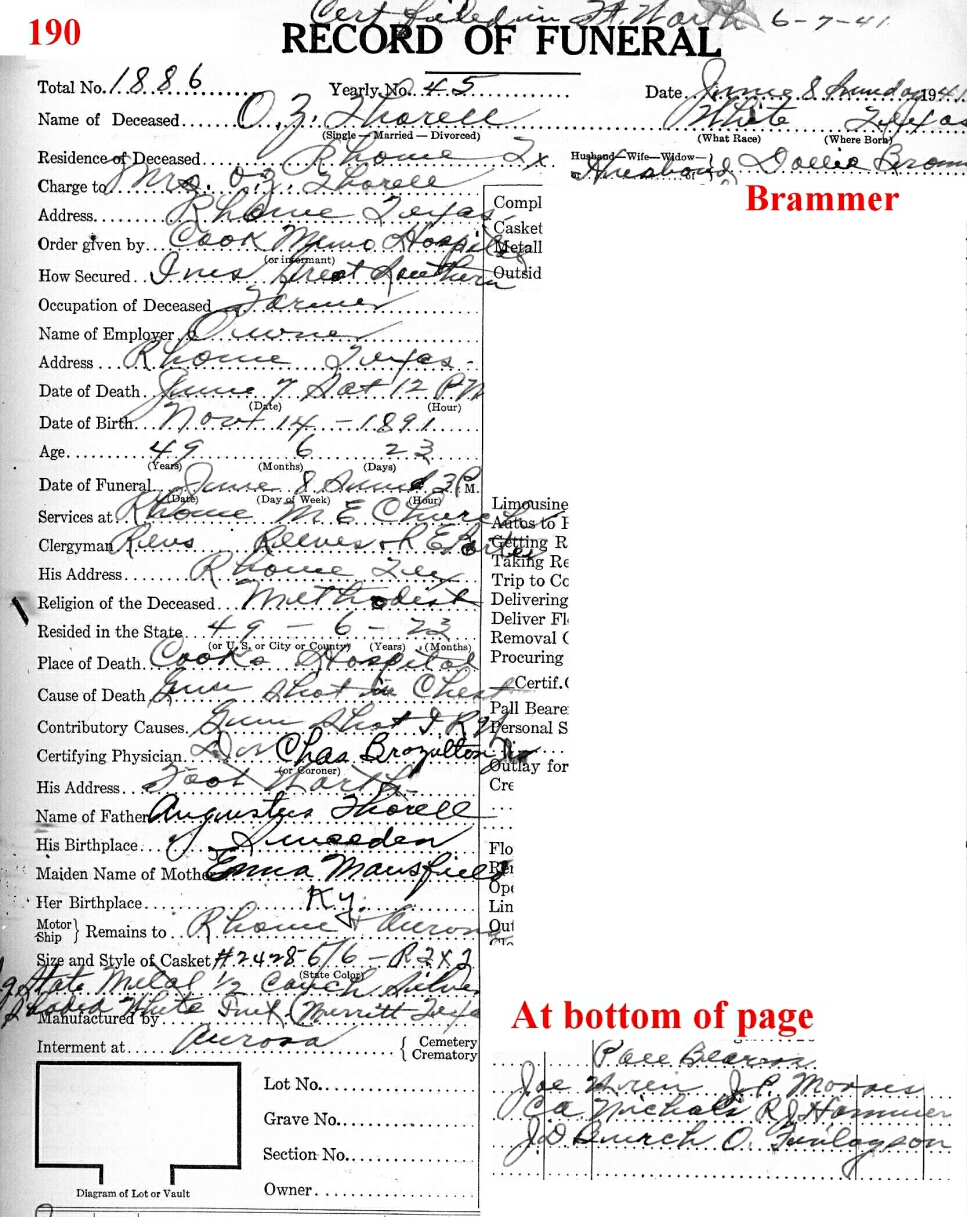 Cert filed in Ft. Worth 6-7-41
190
RECORD OF FUNERAL
Total No. 1886 Yearly No. 45 Date June 8 Sunday 1941
Name of Deceased O. Z. Thorell White Texas
(Single — Married — Divorced) (What Race) (Where Born)
Residence of Deceased Rhome Tx. Husband—Wife—Widow— or Husband Dollie Bram
Charge to Mrs. O.Z. Thorell
Brammer
Address Rhome Texas Compl
Order given by Cook Memo Hospital Casket
(or informant) Metall
How Secured Ins Great Southern Outsid
Occupation of Deceased Farmer
Name of Employer Owner
Address Rhome Texas
Date of Death June 7 Sat 12 PM
(Date) (Hour)
Date of Birth Nov 14 - 1891
Age 49 6 23
(Years) (Months) (Days)
Date of Funeral June 8 Sund 3 P.M.
(Date) (Day of Week) (Hour)
Services at Rhome M E Church Limousine
Autos to F
Clergyman Revs Reeves & R E Porter Getting R
Taking Re
His Address Rhome Tex Trip to Co
Religion of the Deceased Methodist Delivering
Deliver Fl
Resided in the State 49 - 6 - 23 Removal C
(or U. S. or City or County) (Years) (Months)
Place of Death Cooks Hospital Procuring
Cause of Death Gun shot in Chest Certif. C
Pall Beare
Contributory Causes Gun Shot Personal S
Certifying Physician Dr Chas
(or Coroner) Outlay for
His Address Foot Worth Cre
Name of Father Augustus Thorell
His Birthplace Sweeden Flo
Maiden Name of Mother Emma Mansfield
Ope
Her Birthplace Ky. Lin
Motor Ship } Remains to Rhome & Aurora Out
Size and Style of Casket #2428-6/6 - R2X2
(State Color)
State Metal 1/2 Couch Silver
Shaded White Tuft (Merritt Texas
Manufactured by
At bottom of page
Interment at Aurora { Cemetery Crematory
Pall Bearers
Lot No. Joe Wren J.P. Morris
Grave No. Ca Nichols R J Hammer
J D Burch O. Finlayson
Section No.
Owner
Diagram of Lot or Vault